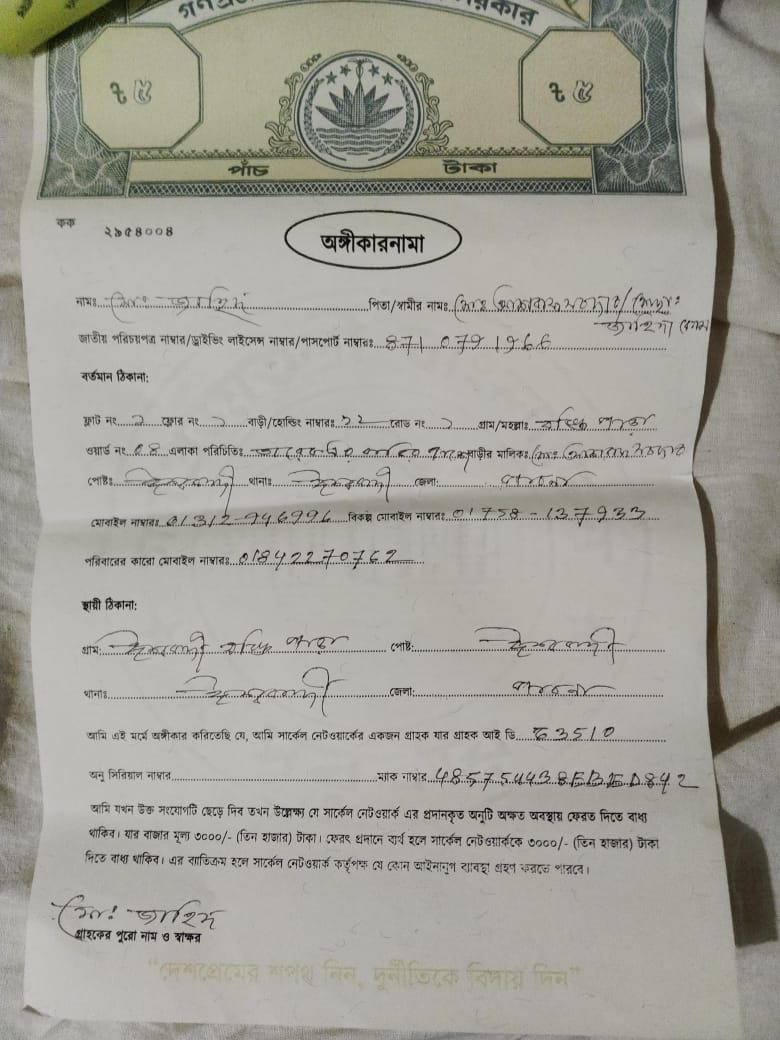 ৳ ৫ ৳ ৫
পাঁচ টাকা
কক ২৯৫৪০০৪
অঙ্গীকারনামা
নামঃ মোঃ জাহিদ পিতা/স্বামীর নামঃ মোঃ
জাতীয় পরিচয়পত্র নাম্বার/ড্রাইভিং লাইসেন্স নাম্বার/পাসপোর্ট নাম্বারঃ 871 079 1966
বর্তমান ঠিকানা:
ফ্লাট নং ফ্লোর নং বাড়ী/হোল্ডিং নাম্বারঃ রোড নং গ্রাম/মহল্লাঃ পাড়া
ওয়ার্ড নং 08 এলাকা পরিচিতিঃ বাড়ীর মালিকঃ মোঃ
পোষ্টঃ ঈশ্বরদী থানাঃ ঈশ্বরদী জেলা: পাবনা
মোবাইল নাম্বারঃ 01312-946996 বিকল্প মোবাইল নাম্বারঃ 01758-137933
পরিবারের কারো মোবাইল নাম্বারঃ 01842270762
স্থায়ী ঠিকানা:
গ্রাম: ঈশ্বরদী পাড়া পোষ্ট: ঈশ্বরদী
থানাঃ ঈশ্বরদী জেলা: পাবনা
আমি এই মর্মে অঙ্গীকার করিতেছি যে, আমি সার্কেল নেটওয়ার্কের একজন গ্রাহক যার গ্রাহক আই ডি 63510
অনু সিরিয়াল নাম্বার ম্যাক নাম্বার
আমি যখন উক্ত সংযোগটি ছেড়ে দিব তখন উল্লেক্ষ্য যে সার্কেল নেটওয়ার্ক এর প্রদানকৃত অনুটি অক্ষত অবস্থায় ফেরত দিতে বাধ্য
থাকিব। যার বাজার মূল্য ৩০০০/- (তিন হাজার) টাকা। ফেরৎ প্রদানে ব্যর্থ হলে সার্কেল নেটওয়ার্ককে ৩০০০/- (তিন হাজার) টাকা
দিতে বাধ্য থাকিব। এর ব্যতিক্রম হলে সার্কেল নেটওয়ার্ক কর্তৃপক্ষ যে কোন আইনানুগ ব্যবস্থা গ্রহণ করতে পারবে।
মোঃ জাহিদ
গ্রাহকের পুরো নাম ও স্বাক্ষর
"দেশপ্রেমের শপথ নিন, দুর্নীতিকে বিদায় দিন"